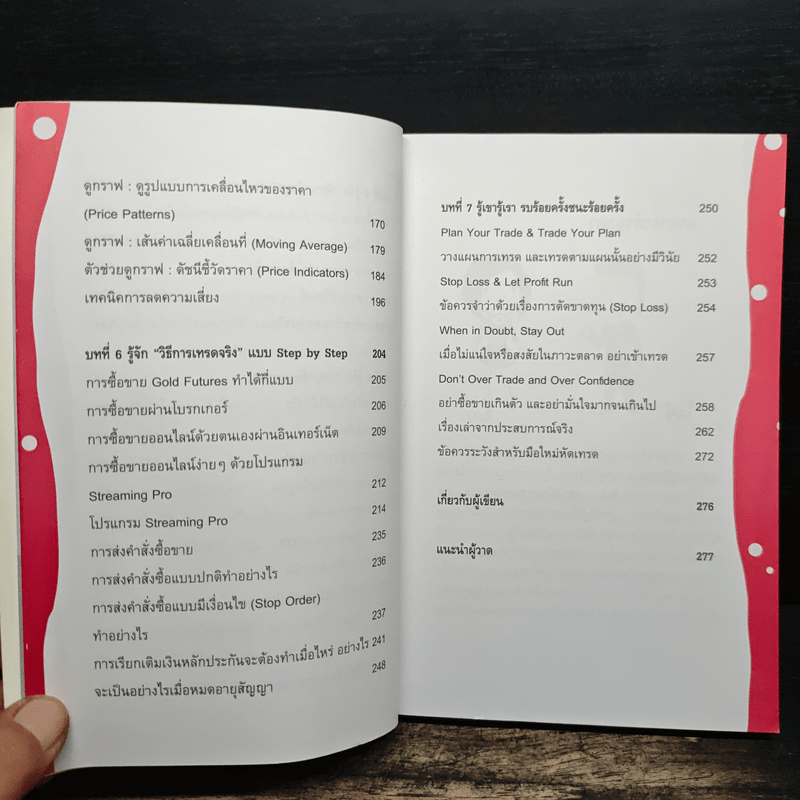 ดูกราฟ : ดูรูปแบบการเคลื่อนไหวของราคา
(Price Patterns) 170
ดูกราฟ : เส้นค่าเฉลี่ยเคลื่อนที่ (Moving Average) 179
ตัวช่วยดูกราฟ : ดัชนีชี้วัดราคา (Price Indicators) 184
เทคนิคการลดความเสี่ยง 196
บทที่ 6 รู้จัก "วิธีการเทรดจริง" แบบ Step by Step 204
การซื้อขาย Gold Futures ทำได้กี่แบบ 205
การซื้อขายผ่านโบรกเกอร์ 206
การซื้อขายออนไลน์ด้วยตนเองผ่านอินเทอร์เน็ต 209
การซื้อขายออนไลน์ง่ายๆ ด้วยโปรแกรม
Streaming Pro 212
โปรแกรม Streaming Pro 214
การส่งคำสั่งซื้อขาย 235
การส่งคำสั่งซื้อแบบปกติทำอย่างไร 236
การส่งคำสั่งซื้อแบบมีเงื่อนไข (Stop Order)
ทำอย่างไร 237
การเรียกเติมเงินหลักประกันจะต้องทำเมื่อไหร่ อย่างไร 241
จะเป็นอย่างไรเมื่อหมดอายุสัญญา 248
บทที่ 7 รู้เขารู้เรา รบร้อยครั้งชนะร้อยครั้ง 250
Plan Your Trade & Trade Your Plan
วางแผนการเทรด และเทรดตามแผนนั้นอย่างมีวินัย 252
Stop Loss & Let Profit Run 253
ข้อควรจำว่าด้วยเรื่องการตัดขาดทุน (Stop Loss) 254
When in Doubt, Stay Out
เมื่อไม่แน่ใจหรือสงสัยในภาวะตลาด อย่าเข้าเทรด 257
Don't Over Trade and Over Confidence
อย่าซื้อขายเกินตัว และอย่ามั่นใจมากจนเกินไป 258
เรื่องเล่าจากประสบการณ์จริง 262
ข้อควรระวังสำหรับมือใหม่หัดเทรด 272
เกี่ยวกับผู้เขียน 276
แนะนำผู้วาด 277